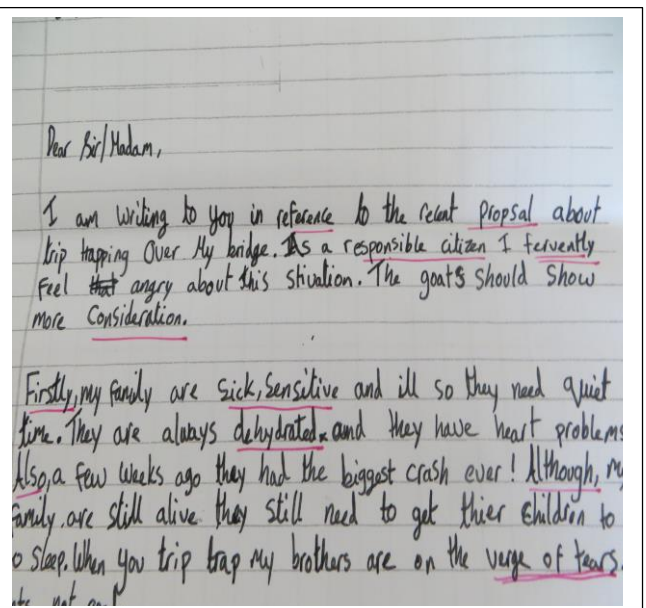 Dear Sir/Madam,
I am writing to you in reference to the recent propsal about
trip trapping Over My bridge. As a responsible citizen I fervently
feel that angry about this stivation. The goats should show
more Consideration.
Firstly, my family are Sick, Sensitive and ill so they need quiet
time. They are always dehydrated and they have heart problems
Also, a few weeks ago they had the biggest crash ever! Although, my
family are still alive they still need to get thier children to
o sleep. When you trip trap my brothers are on the verge of tears.
not